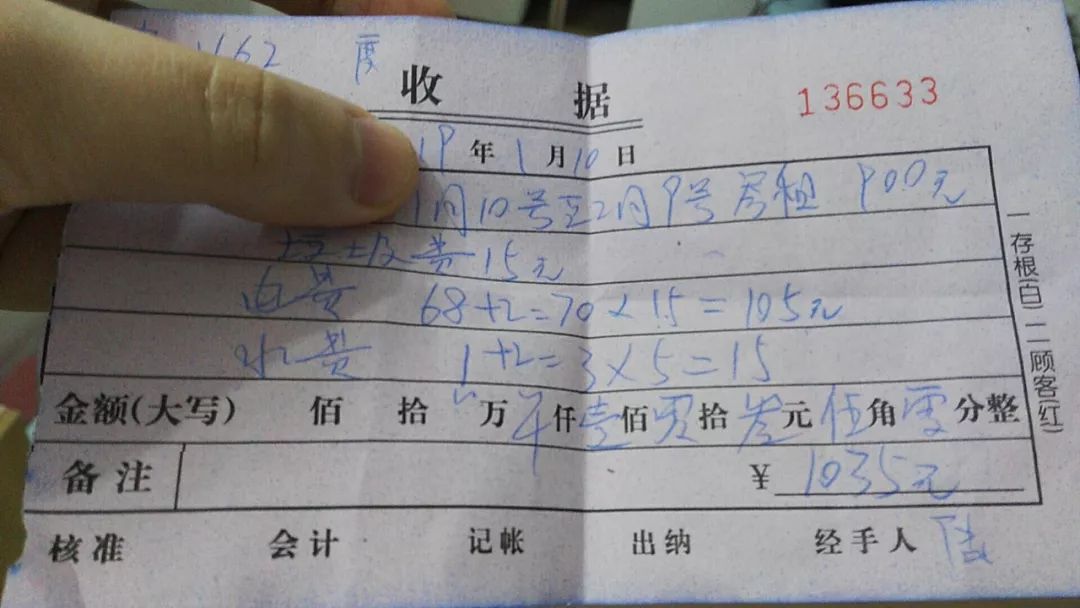 1162 度
收 据
136633
19 年 1 月 10 日
1月10号至2月9号房租 900元
垃圾费15元
电费 68+2=70×1.5=105元
水费 1+2=3×5=15
金额(大写) 佰 拾 万 仟壹佰 拾叁元伍角零分整
备注 ¥ 1035元
核准 会计 记帐 出纳 经手人 陆
一存根(白) 二顾客(红)